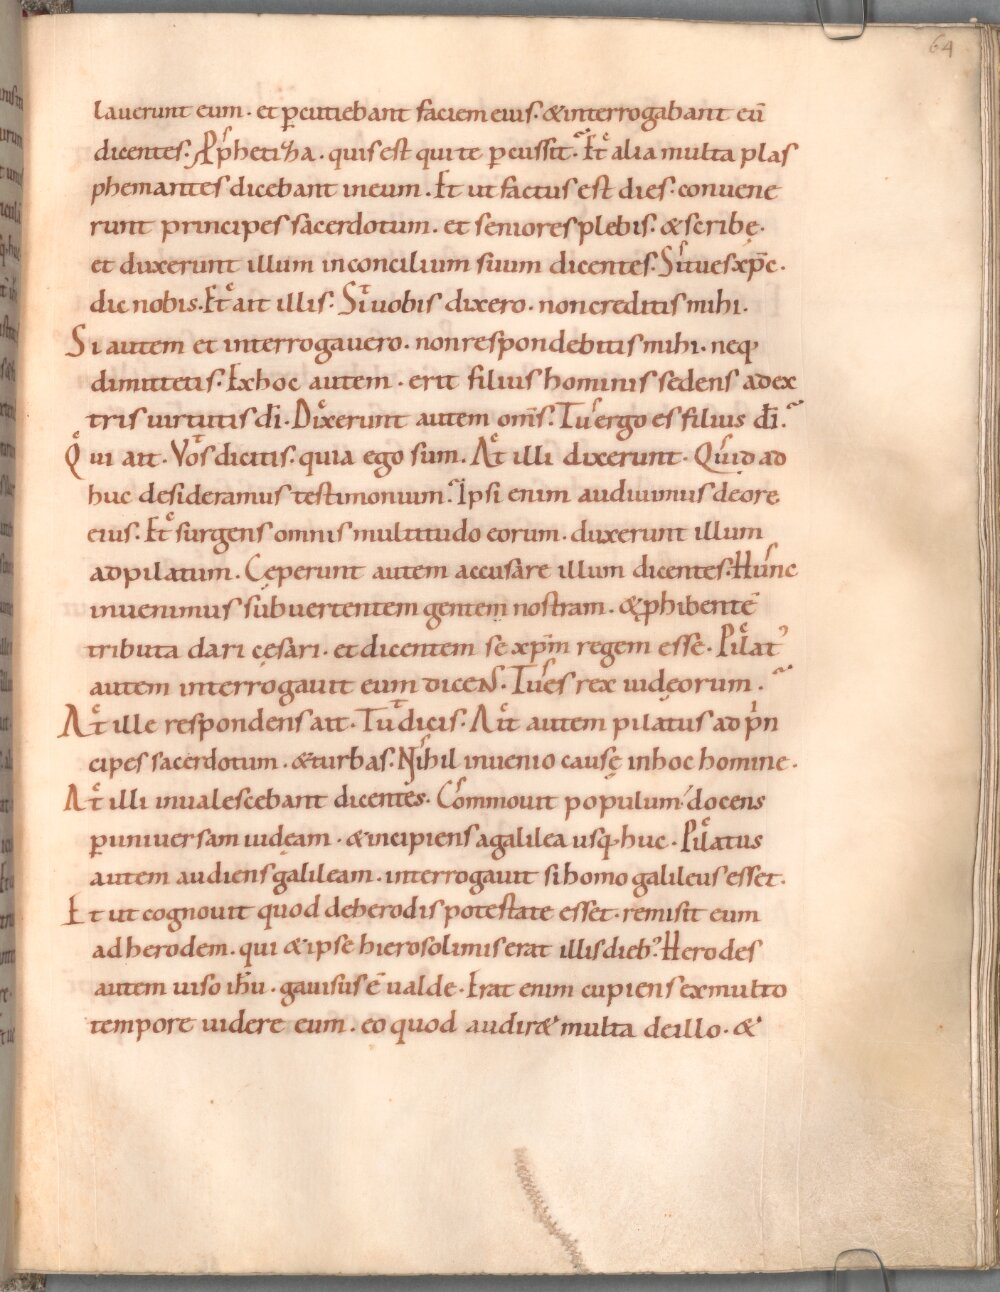 64
lauerunt eum · et ꝑcutiebant faciem eius · & interrogabant eū
dicentes · Prophetiza · quis est qui te ꝑcussit · Et alia multa plas
phemantes dicebant in eum · Et ut factus est dies · conuene
runt principes sacerdotum · et seniores plebis · & scribę ·
et duxerunt illum in concilium suum dicentes · Si tu es xp̄c ·
dic nobis · Et ait illis · Si uobis dixero · non creditis mihi ·
Si autem et interrogauero · non respondebitis mihi · neq;
dimittetis · Ex hoc autem · erit filius hominis sedens adex
tris uirtutis dī · Dixerunt autem om̄s · Tu ergo es filius dī ·
Qui ait · Vos dicitis · quia ego sum · At illi dixerunt · Quid ad
huc desideramus testimonium · Ipsi enim audiuimus de ore
eius · Et surgens omnis multitudo eorum · duxerunt illum
ad pilatum · Cęperunt autem accusare illum dicentes · Hunc
inuenimus subuertentem gentem nostram · & ꝓhibentē
tributa dari cęsari · et dicentem se xp̄m regem esse · Pilat᾽
autem interrogauit eum dicens · Tu es rex iudęorum ·
At ille respondens ait · Tu dicis · Ait autem pilatus ad prin
cipes sacerdotum · & turbas · Nihil inuenio causę in hoc homine ·
At illi inualescebant dicentes · Commouit populum docens
ꝑ uniuersam iudęam · & incipiens a galilea usq; huc · Pilatus
autem audiens galileam · interrogauit si homo galileus esset ·
Et ut cognouit quod de herodis potestate esset · remisit eum
ad herodem · qui & ipse hierosolimis erat illis dieb; Herodes
autem uiso ihū · gauisus ē ualde · Erat enim cupiens ex multo
tempore uidere eum · eo quod audir& multa de illo · &